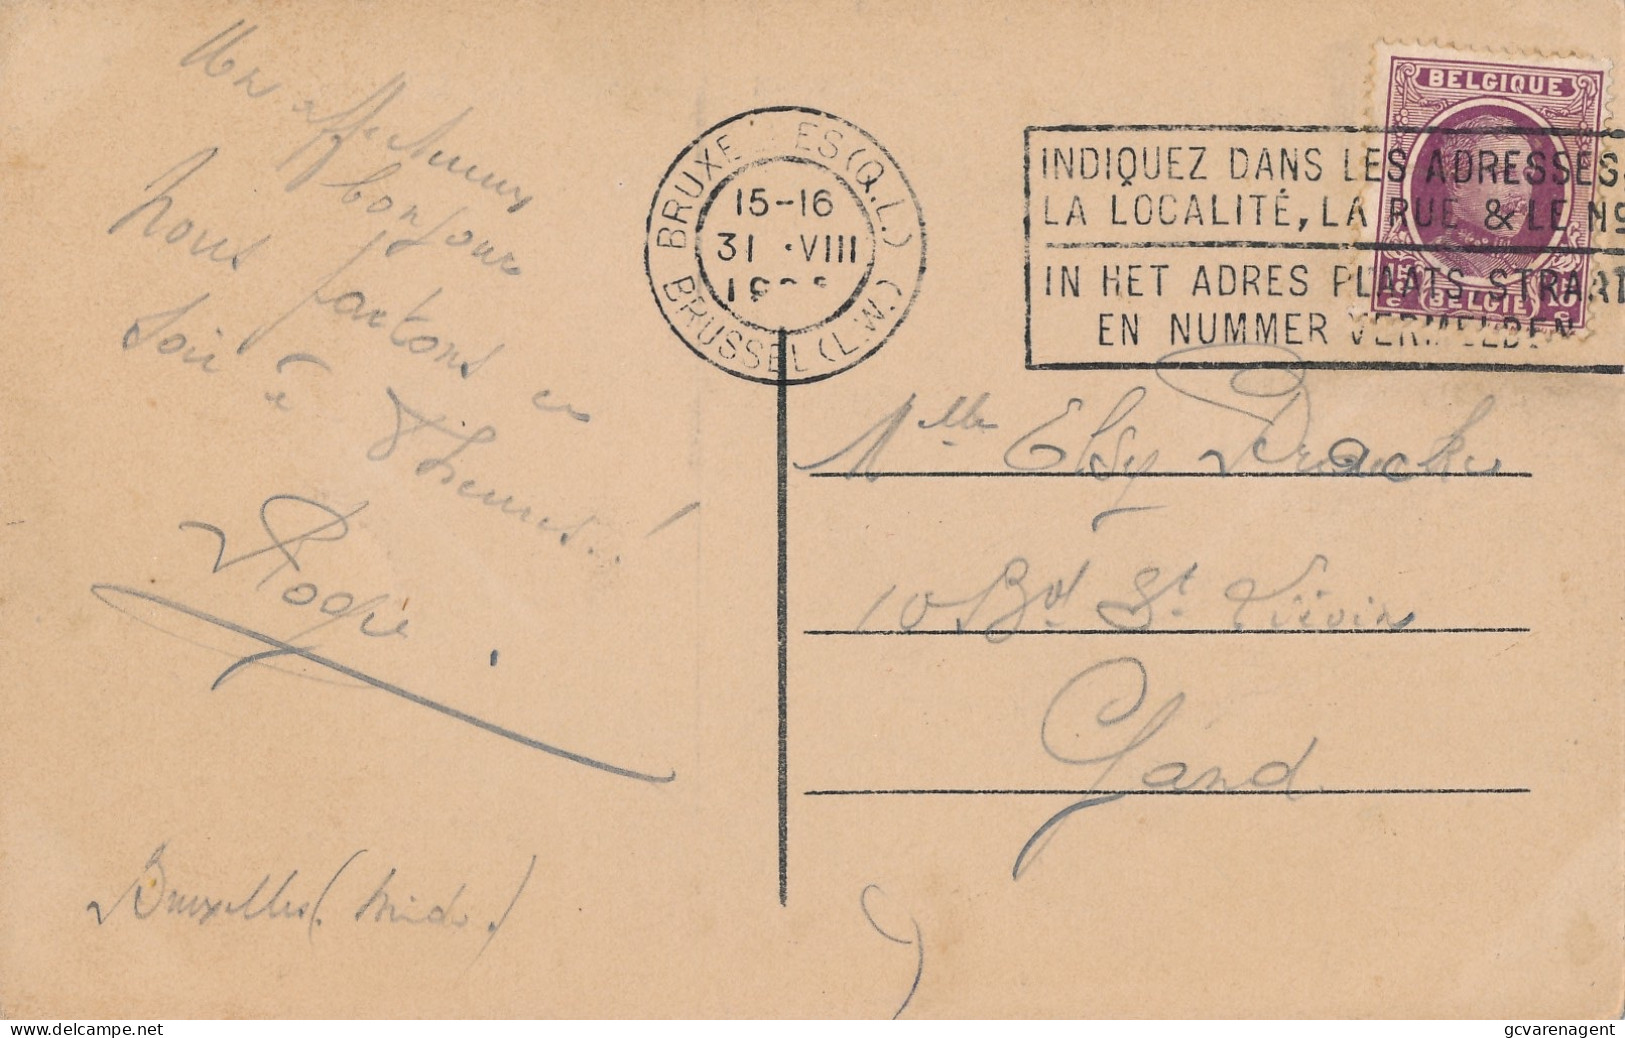 Un affectueux
bonjour
nous partons ce
soir à 8 heures..!
Roger
Bruxelles (midi.)
BRUXELLES (Q.L.)
15-16
31 VIII
BRUSSEL (L.W.)
BELGIQUE
BELGIË
INDIQUEZ DANS LES ADRESSES
LA LOCALITÉ, LA RUE & LE No
IN HET ADRES PLAATS, STRAAT
EN NUMMER VERMELDEN
Mlle Elsy
10 Bd St Liévin
Gand
delcampe.net
gcvarenagent